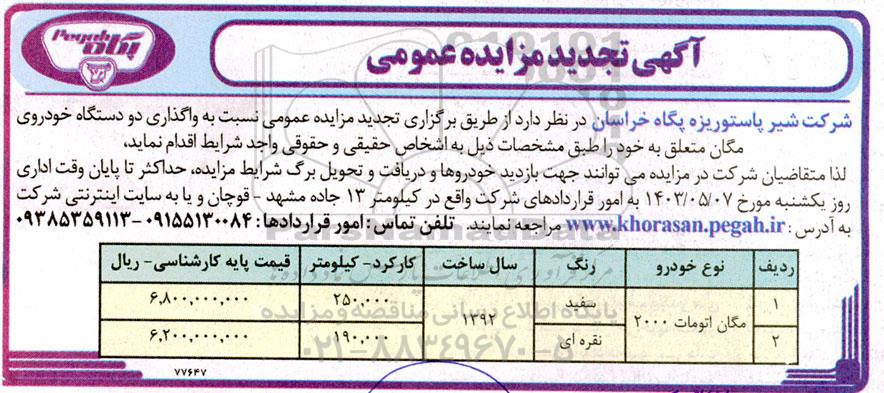 Pegah
پگاه
آگهی تجدید مزایده عمومی
شرکت شیر پاستوریزه پگاه خراسان در نظر دارد از طریق برگزاری تجدید مزایده عمومی نسبت به واگذاری دو دستگاه خودروی
مگان متعلق به خود را طبق مشخصات ذیل به اشخاص حقیقی و حقوقی واجد شرایط اقدام نماید،
لذا متقاضیان شرکت در مزایده می توانند جهت بازدید خودروها و دریافت و تحویل برگ شرایط مزایده، حداکثر تا پایان وقت اداری
روز یکشنبه مورخ ۱۴۰۳/۰۵/۰۷ به امور قراردادهای شرکت واقع در کیلومتر ۱۳ جاده مشهد - قوچان و یا به سایت اینترنتی شرکت
به آدرس : www.khorasan.pegah.ir مراجعه نمایند. تلفن تماس : امور قراردادها : ۰۹۱۵۵۱۳۰۰۸۴-۰۹۳۸۵۳۵۹۱۱۳
ParsNamadData
ردیف نوع خودرو رنگ سال ساخت کارکرد- کیلومتر قیمت پایه کارشناسی- ریال
۱ مگان اتومات ۲۰۰۰ سفید ۱۳۹۲ ۲۵۰,۰۰۰ ۶,۸۰۰,۰۰۰,۰۰۰
۲ نقره ای ۱۹۰,۰۰۰ ۶,۲۰۰,۰۰۰,۰۰۰
پایگاه اطلاع رسانی مناقصه و مزایده
۰۲۱-۸۸۳۴۹۶۷۰-۵
۷۷۶۴۷